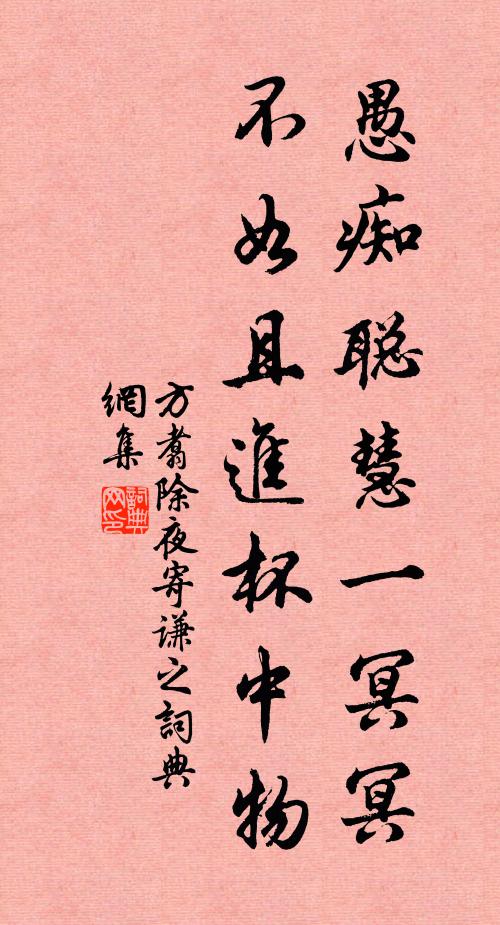 愚痴聪慧一冥冥
不如且進杯中物
方翥除夜寄谦之詞典
網集
詞典网印